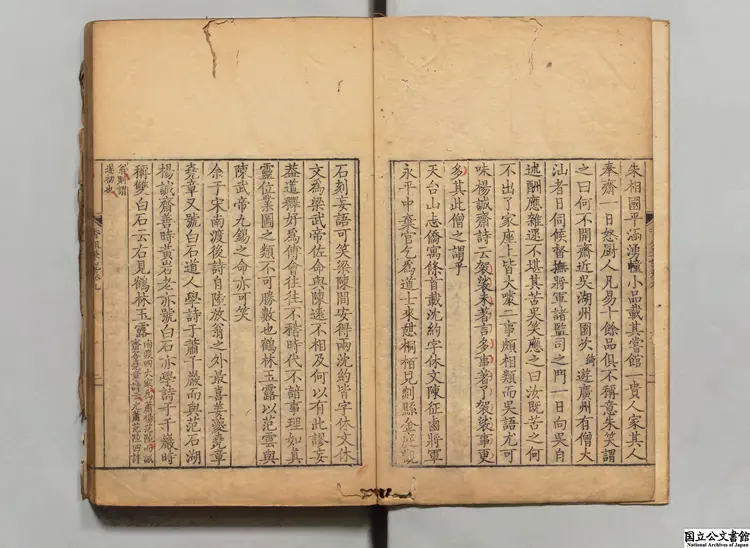 朱相國平涵湧幢小品載其嘗館一貴人家其人
奉齋一日怒厨人凡易十餘品俱不稱意朱笑謂
之曰何不開齋近吳湖州園次綺遊廣州有僧大
汕者日伺候督撫將軍諸監司之門一日向吳自
述酬應雜遝不堪其苦吳笑應之曰汝既苦之何
不出了家座上皆大噱二事頗相類而吳語尤可
味楊誠齋詩云袈裟未著言多事著了袈裟事更
多其此僧之謂乎
天台山志僑寓條首載沈約字休文陳征虜將軍
永平中棄官乞為道士來憩桐栢見剡縣金庭觀
石刻妄語可笑梁陳間安得兩沈約皆字休文休
文為梁武帝佐命與陳遠不相及何以有此謬妄
葢道釋好為傅會往往不稽時代不諳事理如真
靈位業圖之類不可勝數也鶴林玉露以范雲與
陳武帝九錫之命亦可笑
余于宋南渡後詩自陸放翁之外最喜姜夔堯章
堯章又號白石道人學詩于蕭千巖而與范石湖
楊誠齋善時黃岩老亦號白石亦學詩于千巖時
稱雙白石云右見鶴林玉露南渡四大家蕭楊范陸尤蕭范陸四詩
翁則謂
遂初也
国立公文書館
National Archives of Japan